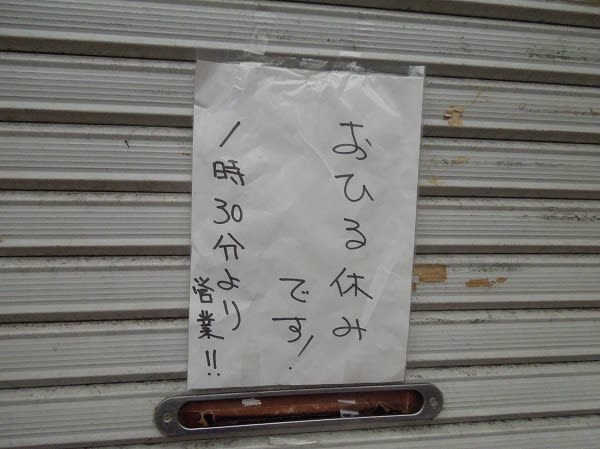 おひる休み
です!
1時30分より
営業!!